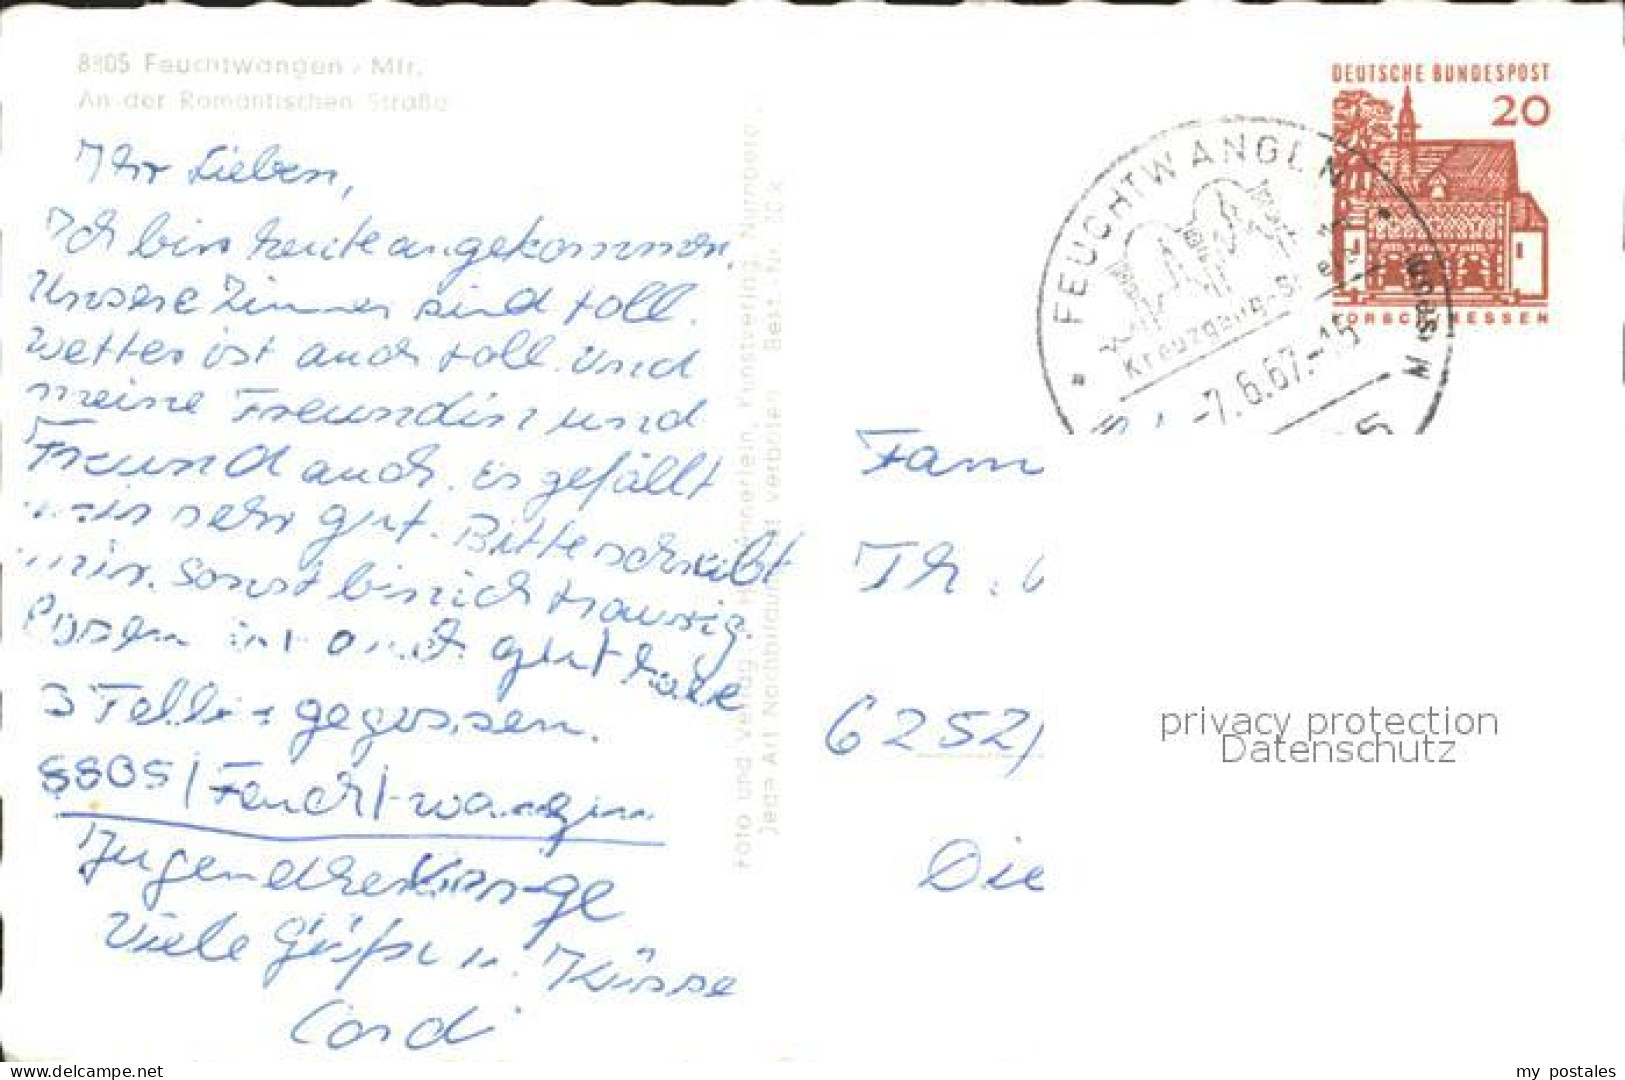 8805 Feuchtwangen / Mfr.
An der Romantischen Straße
Ihr Lieben,
Ich bin heute angekommen.
Unsere Zimmer sind toll.
Wetter ist auch toll. Und
meine Freundin und
Freund auch. Es gefällt
mir sehr gut. Bitte schreibt
mir. Sonst bin ich traurig.
Essen ist auch gut habe
3 Teller gegessen.
8805 / Feuchtwangen
Jugendherberge
Viele Grüße u. Küsse
Cordi
Foto und Verlag Kunstverlag, Nürnberg.
Jede Art Nachbildung verboten Best.-Nr.
DEUTSCHE BUNDESPOST
20
LORSCH / HESSEN
FEUCHTWANGEN
Kreuzgang-
-7.6.67.-15
Fam
Th.
6252/
Die
privacy protection
Datenschutz
www.delcampe.net
my_postales